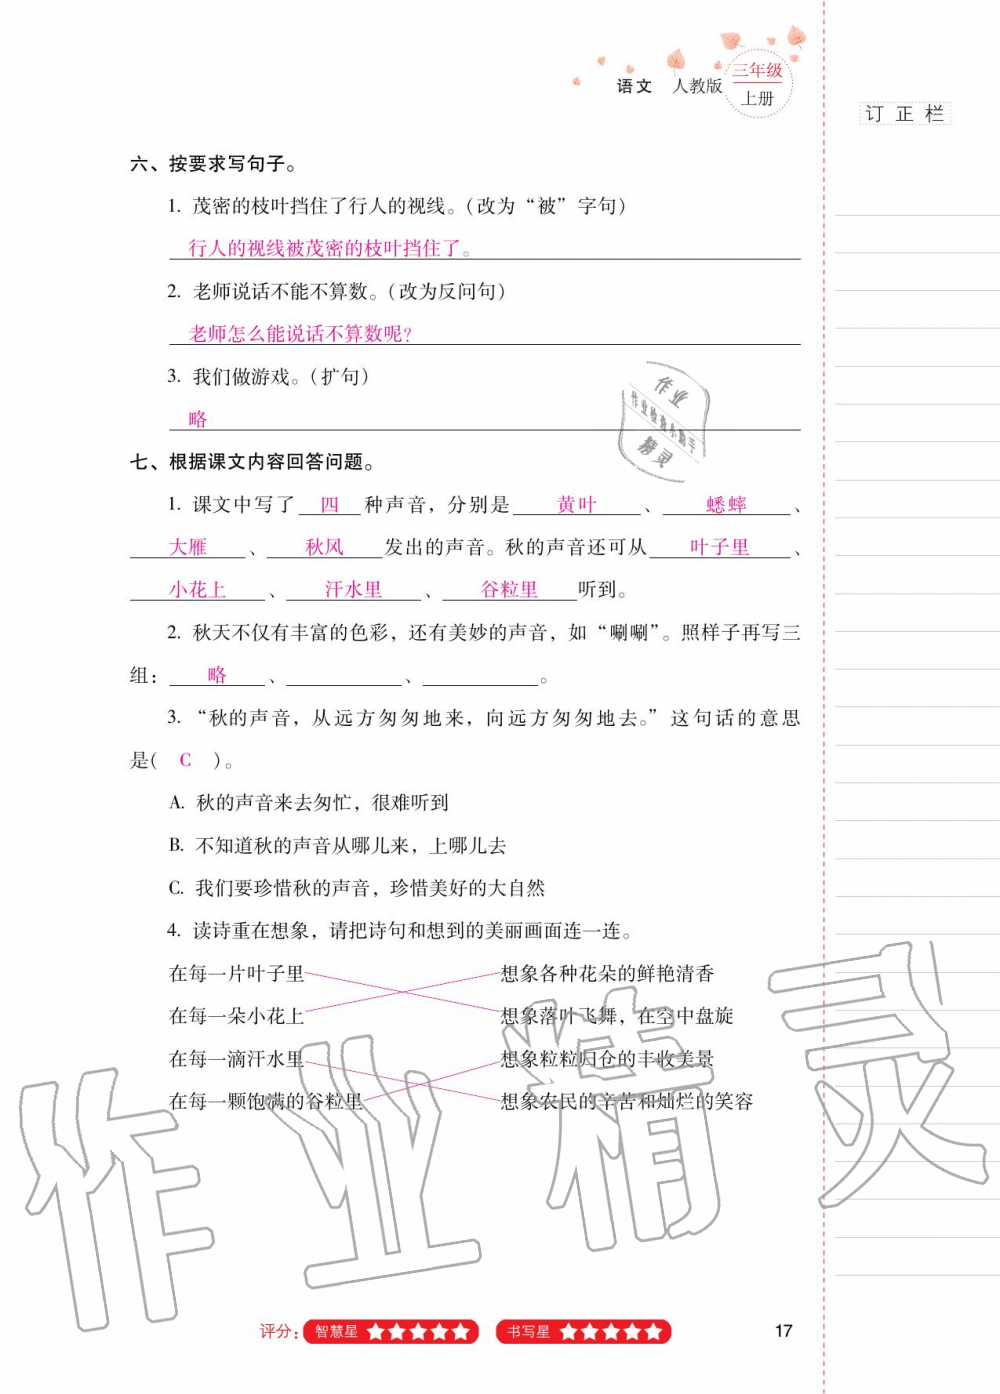 语文 人教版 三年级
上册
订正栏
六、按要求写句子。
1. 茂密的枝叶挡住了行人的视线。(改为“被”字句)
行人的视线被茂密的枝叶挡住了。
2. 老师说话不能不算数。(改为反问句)
老师怎么能说话不算数呢?
3. 我们做游戏。(扩句)
略
七、根据课文内容回答问题。
1. 课文中写了 四 种声音，分别是 黄叶 、 蟋蟀 、
大雁 、 秋风 发出的声音。秋的声音还可从 叶子里 、
小花上 、 汗水里 、 谷粒里 听到。
2. 秋天不仅有丰富的色彩，还有美妙的声音，如“唰唰”。照样子再写三
组： 略 、 、 。
3. “秋的声音，从远方匆匆地来，向远方匆匆地去。”这句话的意思
是( C )。
A. 秋的声音来去匆忙，很难听到
B. 不知道秋的声音从哪儿来，上哪儿去
C. 我们要珍惜秋的声音，珍惜美好的大自然
4. 读诗重在想象，请把诗句和想到的美丽画面连一连。
在每一片叶子里 想象各种花朵的鲜艳清香
在每一朵小花上 想象落叶飞舞，在空中盘旋
在每一滴汗水里 想象粒粒归仓的丰收美景
在每一颗饱满的谷粒里 想象农民的辛苦和灿烂的笑容
评分： 智慧星 书写星
17
作业
作业检查小助手
精灵
作业精灵